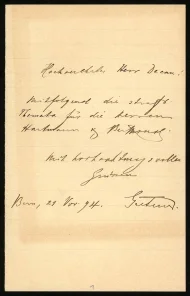 Hochverehrter Herr Decan!
Mitfolgend die
Themata für die Herren
Hartmann &
Mit hochachtungsvollem
Bern, 21 Nov 94.